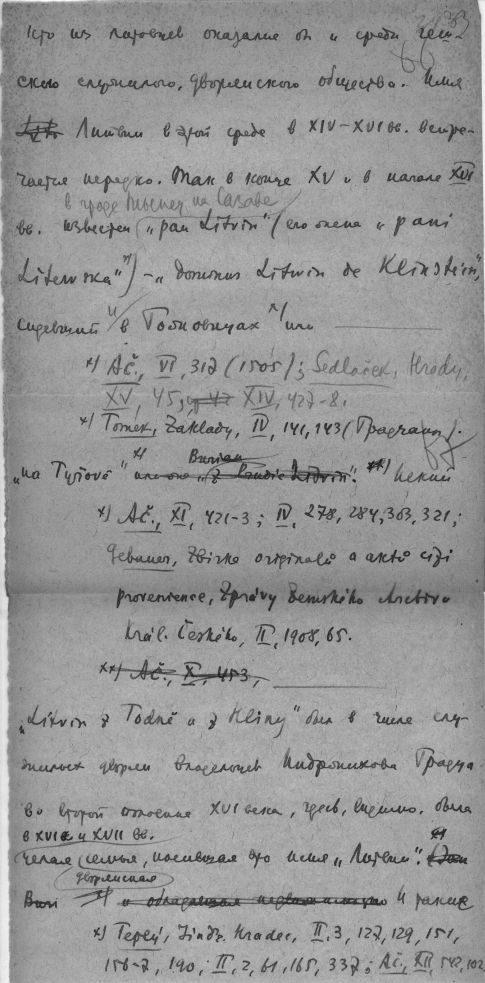 33
66
Кто из литовцев оказался он и среди чеш-
ского служилого, дворянского общества. Имя
Литвин в этой среде в XIV–XVI вв. встре-
чается нередко. Так в конце XV и в начале XVI
в городе на Сазаве
вв. известен „pan Litvin" (его жена „pani
Litewska" *) – „dominus Litwin de Klinstein",
сидевший в *) или
*) Ač., VI, 312 (1505); Sedláček, Hrady,
XV, 45; XIV, 427-8.
*) Tomek, Základy, IV, 141, 143 (Градчаны).
67
„na Tyřově" *) Burian Litvin". **) Некий
*) Ač., XI, 421-3; IV, 278, 284, 303, 321;
Gebauer, Zbirka originálů a aktů cizi
provenience, Zprávy Zemského Archivu
Král. Českého, II, 1908, 65.
**) Ač., X, 453,
„Litvin z Todně a z Kliny" был в числе слу-
жилых дворян владельцев Индрихова Градца
во второй половине XVI века, здесь, видимо, была
в XVI и XVII вв.
целая семья, носившая это имя „Литвин". *)
дворянская
И также
*) Teplý, Jindř. Hradec, II, 3, 127, 129, 151,
156-7, 190; II, 2, 61, 165, 337; Ač., XII, 542, 102